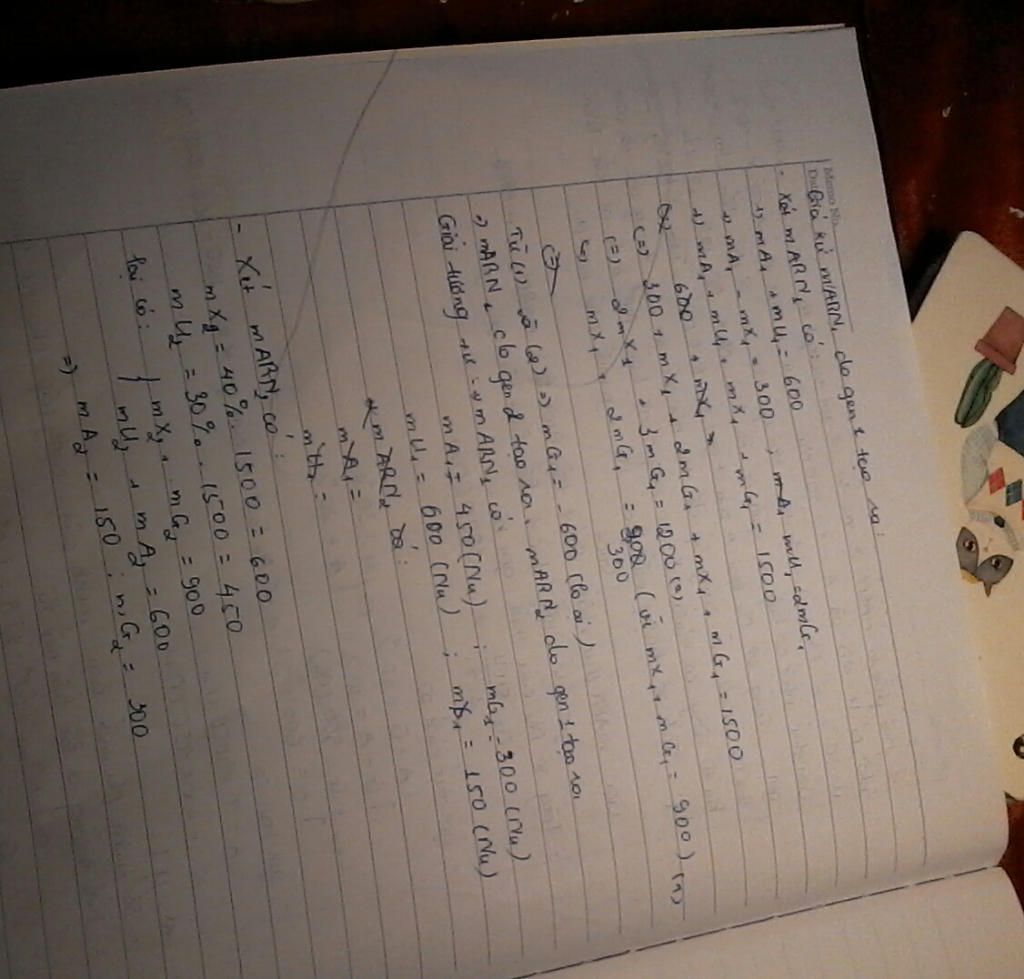 Memo No.
Giả sử mARN₁ do gen 1 tạo ra:
- Xét mARN₁ có:
=) mA₁ + mU₁ = 600
=) mA₁ - mX₁ = 300 ; mA₁ mU₁ = 2mG₁
=) mA₁ + mU₁ + mX₁ + mG₁ = 1500
600 + mX₁
(=) 300 + mX₁ + 2mG₁ + mX₁ + mG₁ = 1500
(=) 2mX₁ + 3mG₁ = 1200 (2)
(=) mX₁ + 2mG₁ = 900 (vì mX₁ + mG₁ = 900) (1)
300
(=)
Từ (1) và (2) =) mG₁ = - 600 (loại)
=) mARN₁ do gen 2 tạo ra, mARN₂ do gen 1 tạo ra
Giải tương tự =) mARN₁ có
mA₁ = 450 (Nu) ; mG₁ = 300 (Nu)
mU₁ = 600 (Nu) ; mX₁ = 150 (Nu)
mARN₂ có:
mA₁ =
mU₁ =
- Xét mARN₂ có:
mX₂ = 40%. 1500 = 600
mU₂ = 30%. 1500 = 450
lại có: { mX₂ + mG₂ = 900
mU₂ + mA₂ = 600
=) mA₂ = 150 ; mG₂ = 300